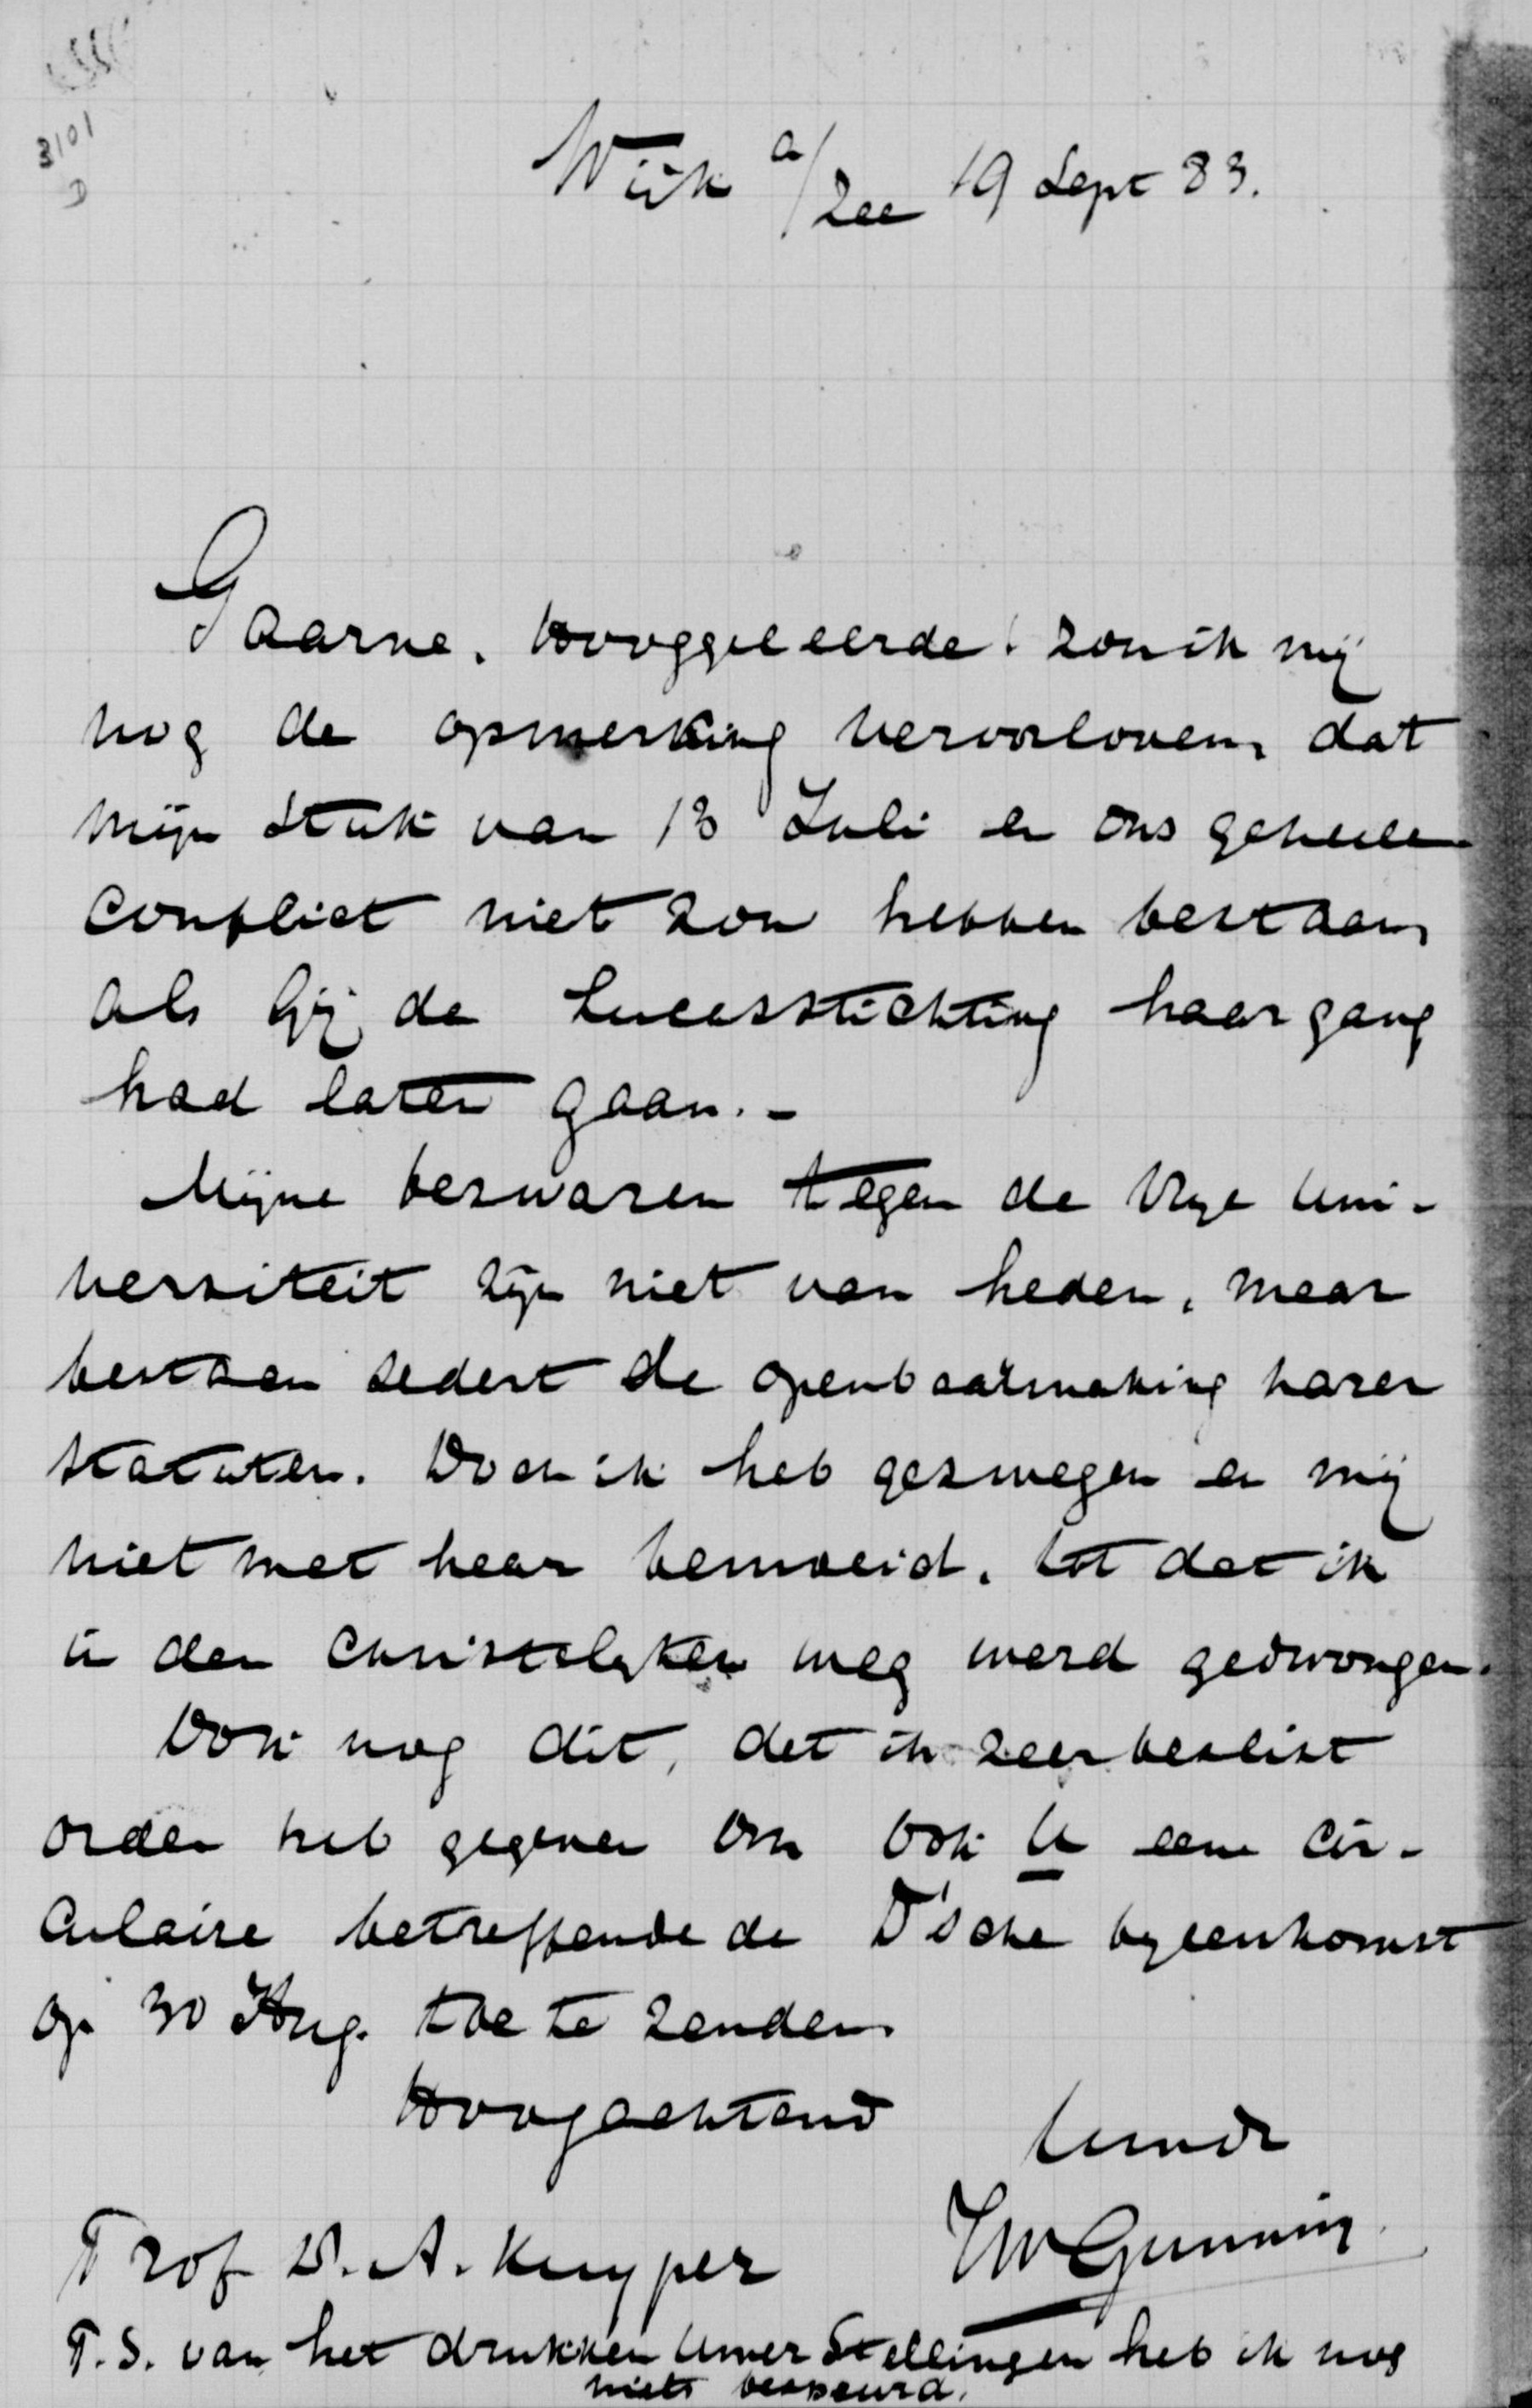 3101
D
Wijk a/Zee 19 Sept 83.
Gaarne, Hooggeleerde! zou ik mij
nog de opmerking veroorloven, dat
mijn stuk van 13 Juli en ons geheele
conflict niet zou hebben bestaan,
als Gij de Lucasstichting haar gang
had laten gaan. –
Mijne bezwaren tegen de Vrije Uni-
versiteit zijn niet van heden, maar
bestaan sedert de openbaarmaking harer
statuten. Doch ik heb gezwegen en mij
niet met haar bemoeid, tot dat ik
in den Christelijken weg werd gedwongen.
Ook nog dit, dat ik zeer beslist
order heb gegeven om ook U eene cir-
culaire betreffende de D'sche bijeenkomst
op 30 Aug. toe te zenden.
Hoogachtend
Uwdr
JWGunning
Prof D. A. Kuyper
P.S. van het drukken Uwer Stellingen heb ik nog
niets bespeurd.